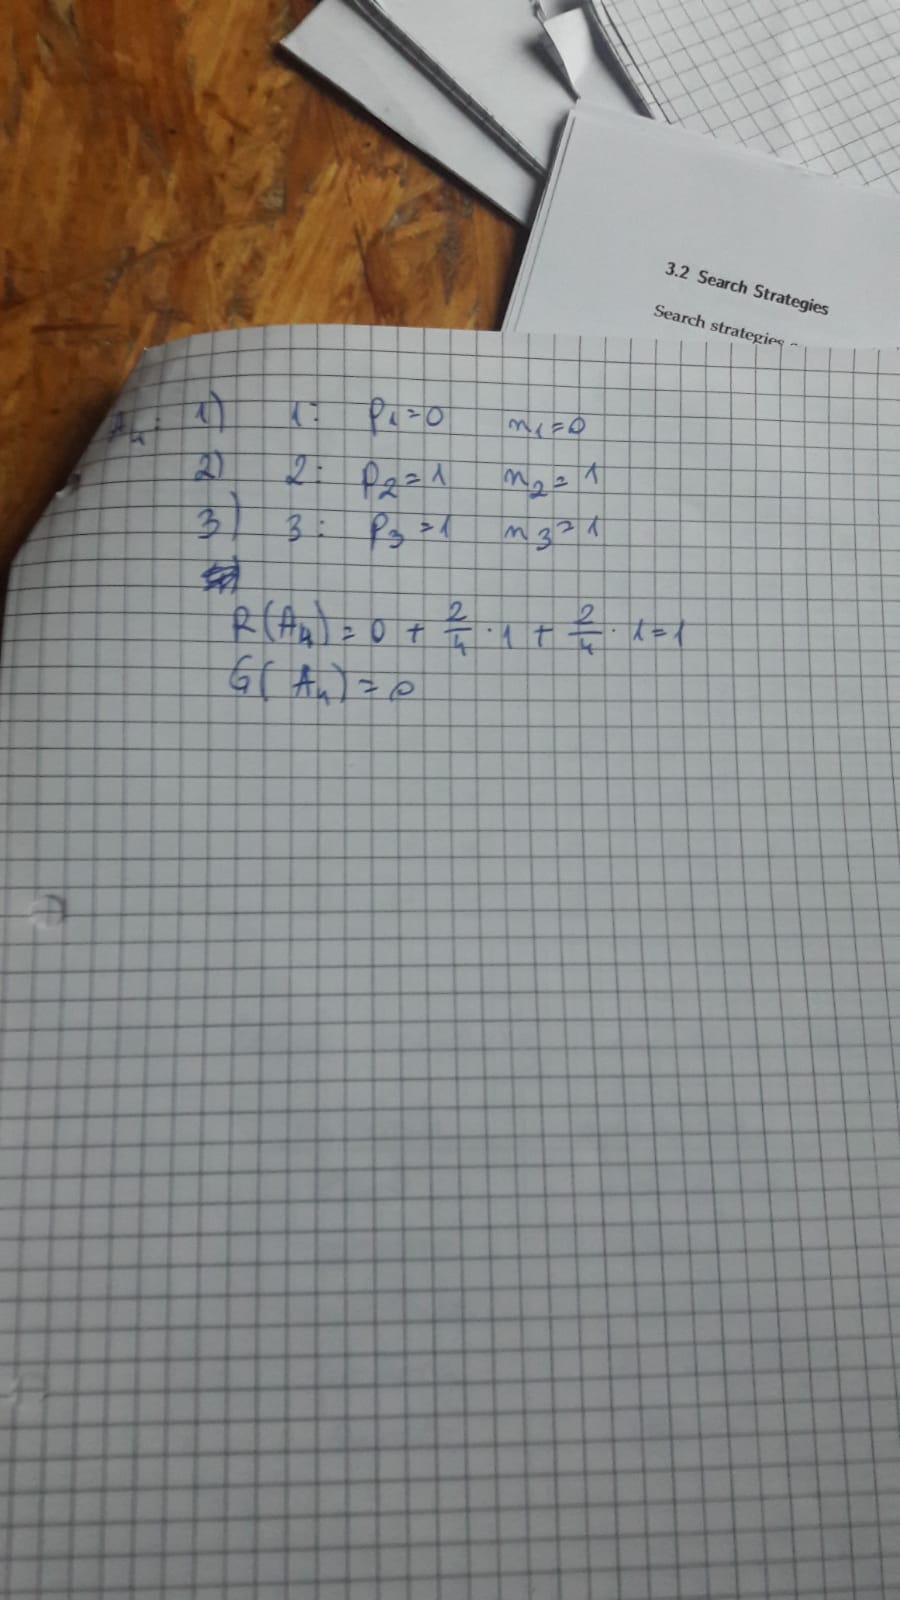 3.2 Search Strategies
Search strategies
A4: 1) 1: P1=0 n1=0
2) 2: P2=1 n2=1
3) 3: P3=1 n3=1
R(A4) = 0 + 2/4 · 1 + 2/4 · 1=1
G(A4)=0